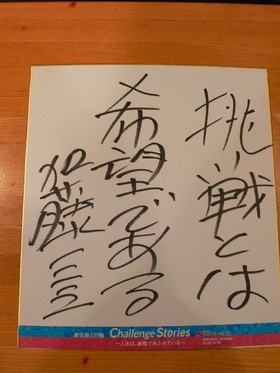 挑戦とは
希望である
加藤三三
東京海上日動 Challenge Stories
～人生は、挑戦であふれている～